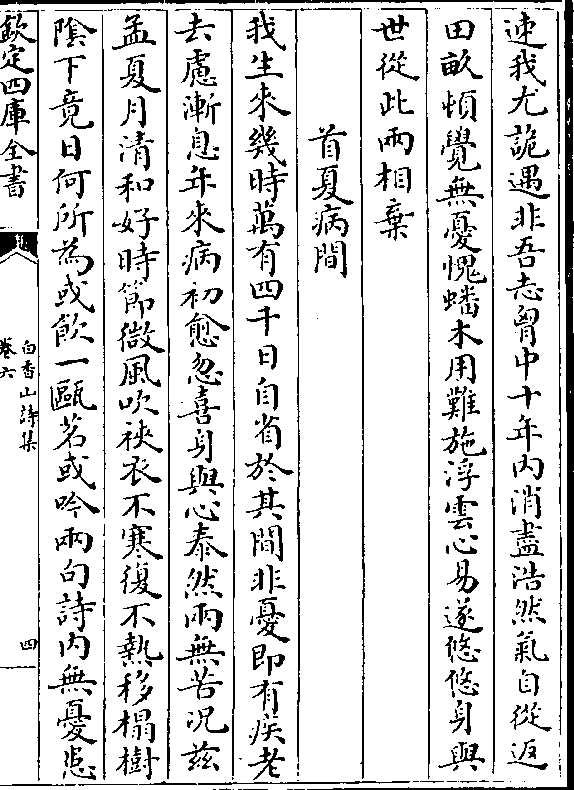 速我尤詭遇非吾志胷中十年内消盡浩然氣自從返
田畝頓覺無憂愧蟠木用難施浮雲心易遂悠悠身與
世從此兩相棄
首夏病間
我生來幾時萬有四千日自省於其間非憂即有疾老
去慮漸息年來病初愈忽喜身與心泰然兩無苦况兹
孟夏月清和好時節微風吹裌衣不寒復不熱移榻樹
陰下竟日何所為或飲一甌茗或吟兩句詩内無憂患
欽定四庫全書
白香山詩集
卷六
四